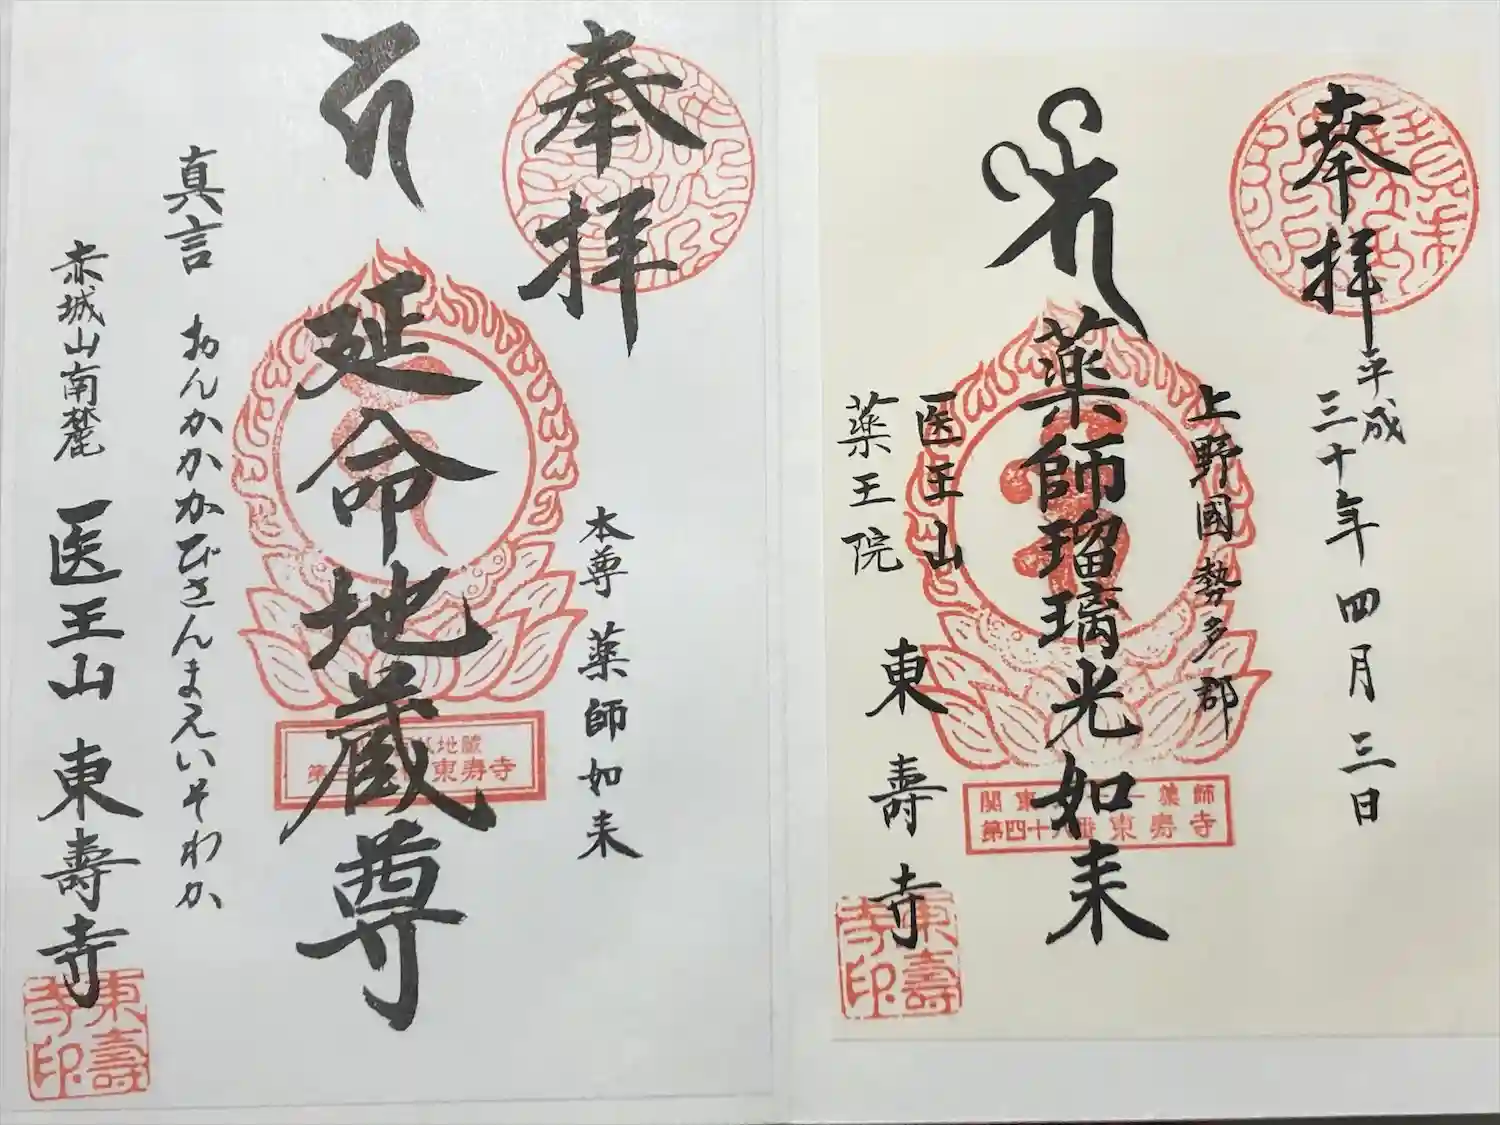 奉拝
平成
三十年四月三日
上野國勢多郡
薬師瑠璃光如来
医王山
薬王院
東壽寺
東壽
寺印
薬師
東寿寺
奉拝
本尊 薬師如来
延命地蔵尊
地蔵
東寿寺
真言 おんかかかびさんまえいそわか
赤城山南麓 医王山 東壽寺
東壽
寺印